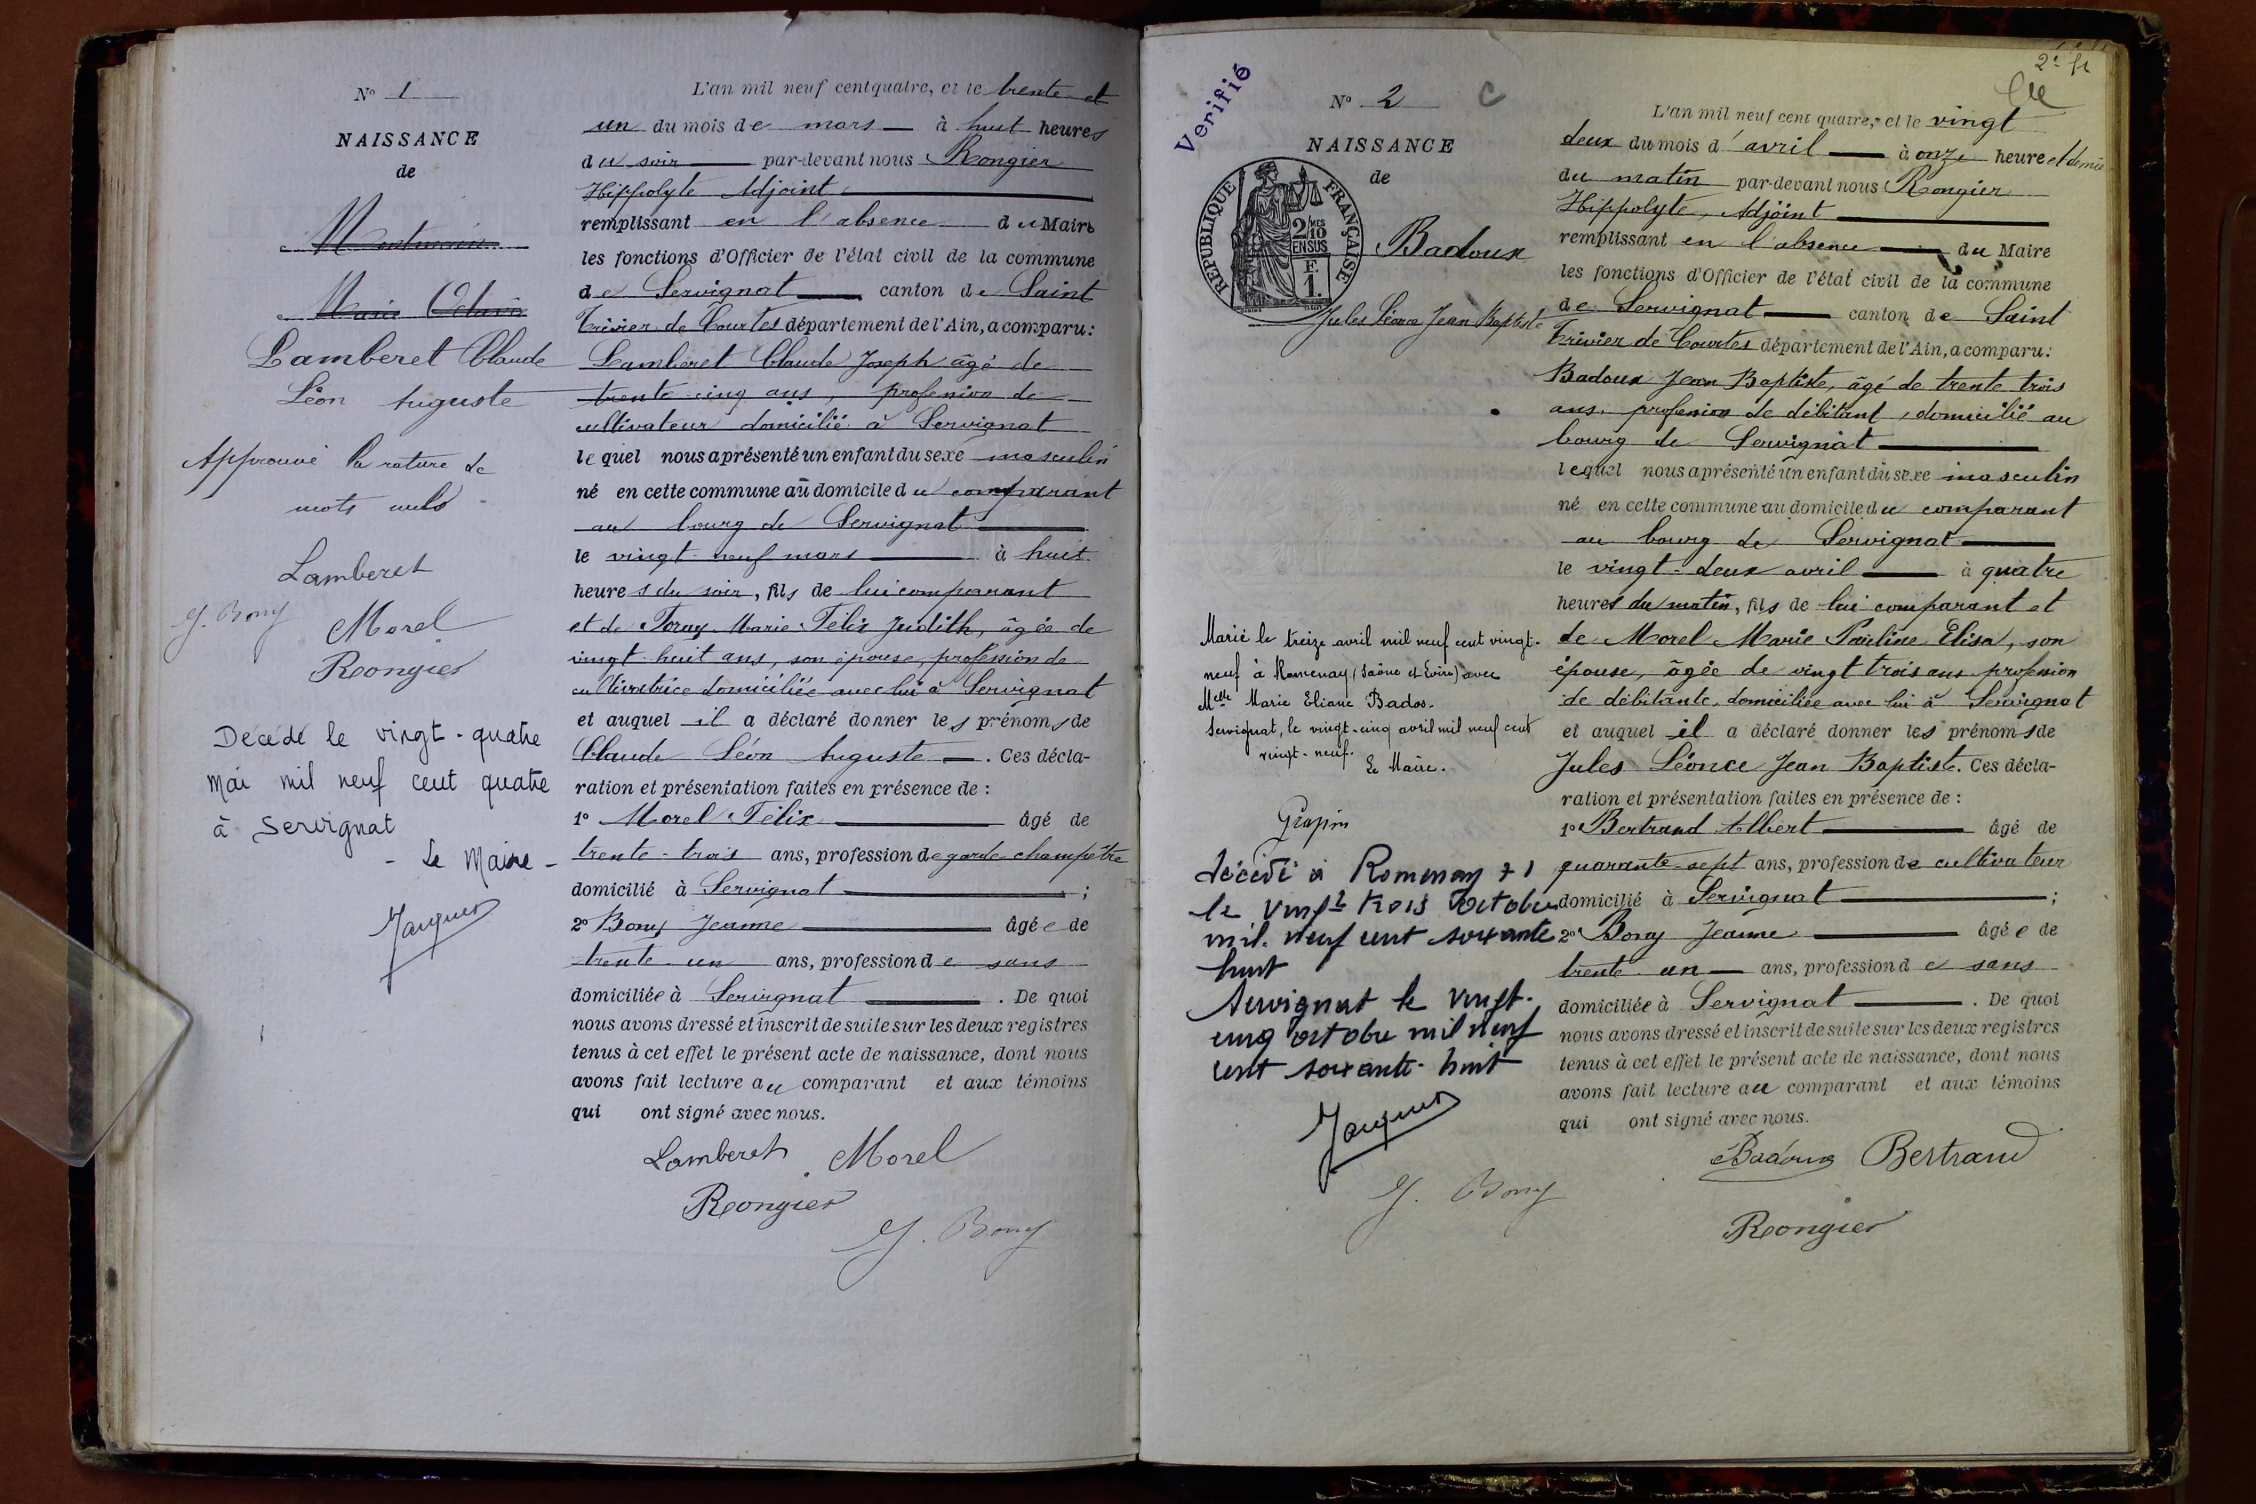 N° 1
NAISSANCE
de
Lamberet Claude
Léon Auguste
Approuvé la rature de
mots nuls
Lamberet
J. Bony
Morel
Rongier
Décédé le vingt-quatre
mai mil neuf cent quatre
à Servignat
- Le Maire -
L'an mil neuf cent quatre, et le trente et
un du mois de mars à huit heures
du soir par-devant nous Rongier
Hippolyte Adjoint
remplissant en l'absence du Maire
les fonctions d'Officier de l'état civil de la commune
de Servignat canton de Saint
Trivier de Courtes département de l'Ain, a comparu:
Lamberet Claude Joseph âgé de
trente cinq ans, profession de
cultivateur domicilié à Servignat
lequel nous a présenté un enfant du sexe masculin
né en cette commune au domicile du comparant
au bourg de Servignat
le vingt-neuf mars à huit
heures du soir, fils de lui comparant
et de Foray Marie Félix Judith, âgée de
vingt-huit ans, son épouse, profession de
cultivatrice domiciliée avec lui à Servignat
et auquel il a déclaré donner les prénoms de
Claude Léon Auguste. Ces décla-
ration et présentation faites en présence de :
1° Morel Félix âgé de
trente-trois ans, profession de garde-champêtre
domicilié à Servignat ;
2° Bony Jeanne âgée de
trente-un ans, profession de sans
domiciliée à Servignat. De quoi
nous avons dressé et inscrit de suite sur les deux registres
tenus à cet effet le présent acte de naissance, dont nous
avons fait lecture au comparant et aux témoins
qui ont signé avec nous.
Lamberet Morel
Rongier
J. Bony
Verifié
N° 2 C
NAISSANCE
de
REPUBLIQUE FRANÇAISE
2/10
EN SUS
F.
1.
Badoux
Jules Léonce Jean Baptiste
Marié le treize avril mil neuf cent vingt-
neuf à Romenay (Saône et Loire) avec
Melle Marie Eliane Bados.
Servignat, le vingt-cinq avril mil neuf cent
vingt-neuf.
Le Maire.
décédé à Romenay
le vingt trois octobre
mil neuf cent soixante
huit
Servignat le vingt-
cinq octobre mil neuf
cent soixante-huit
J. Bony
L'an mil neuf cent quatre, et le vingt
deux du mois d'avril à onze heure et demie
du matin par-devant nous Rongier
Hippolyte, Adjoint
remplissant en l'absence du Maire
les fonctions d'Officier de l'état civil de la commune
de Servignat canton de Saint
Trivier de Courtes département de l'Ain, a comparu:
Badoux Jean Baptiste, âgé de trente trois
ans, profession de débitant, domicilié au
bourg de Servignat
lequel nous a présenté un enfant du sexe masculin
né en cette commune au domicile du comparant
au bourg de Servignat
le vingt-deux avril à quatre
heures du matin, fils de lui comparant et
de Morel Marie Pauline Elisa, son
épouse, âgée de vingt trois ans profession
de débitante, domiciliée avec lui à Servignat
et auquel il a déclaré donner les prénoms de
Jules Léonce Jean Baptiste. Ces décla-
ration et présentation faites en présence de :
1° Bertrand Albert âgé de
quarante-sept ans, profession de cultivateur
domicilié à Servignat ;
2° Bony Jeanne âgée de
trente-un ans, profession de sans
domiciliée à Servignat. De quoi
nous avons dressé et inscrit de suite sur les deux registres
tenus à cet effet le présent acte de naissance, dont nous
avons fait lecture au comparant et aux témoins
qui ont signé avec nous.
Badoux Bertrand
Rongier